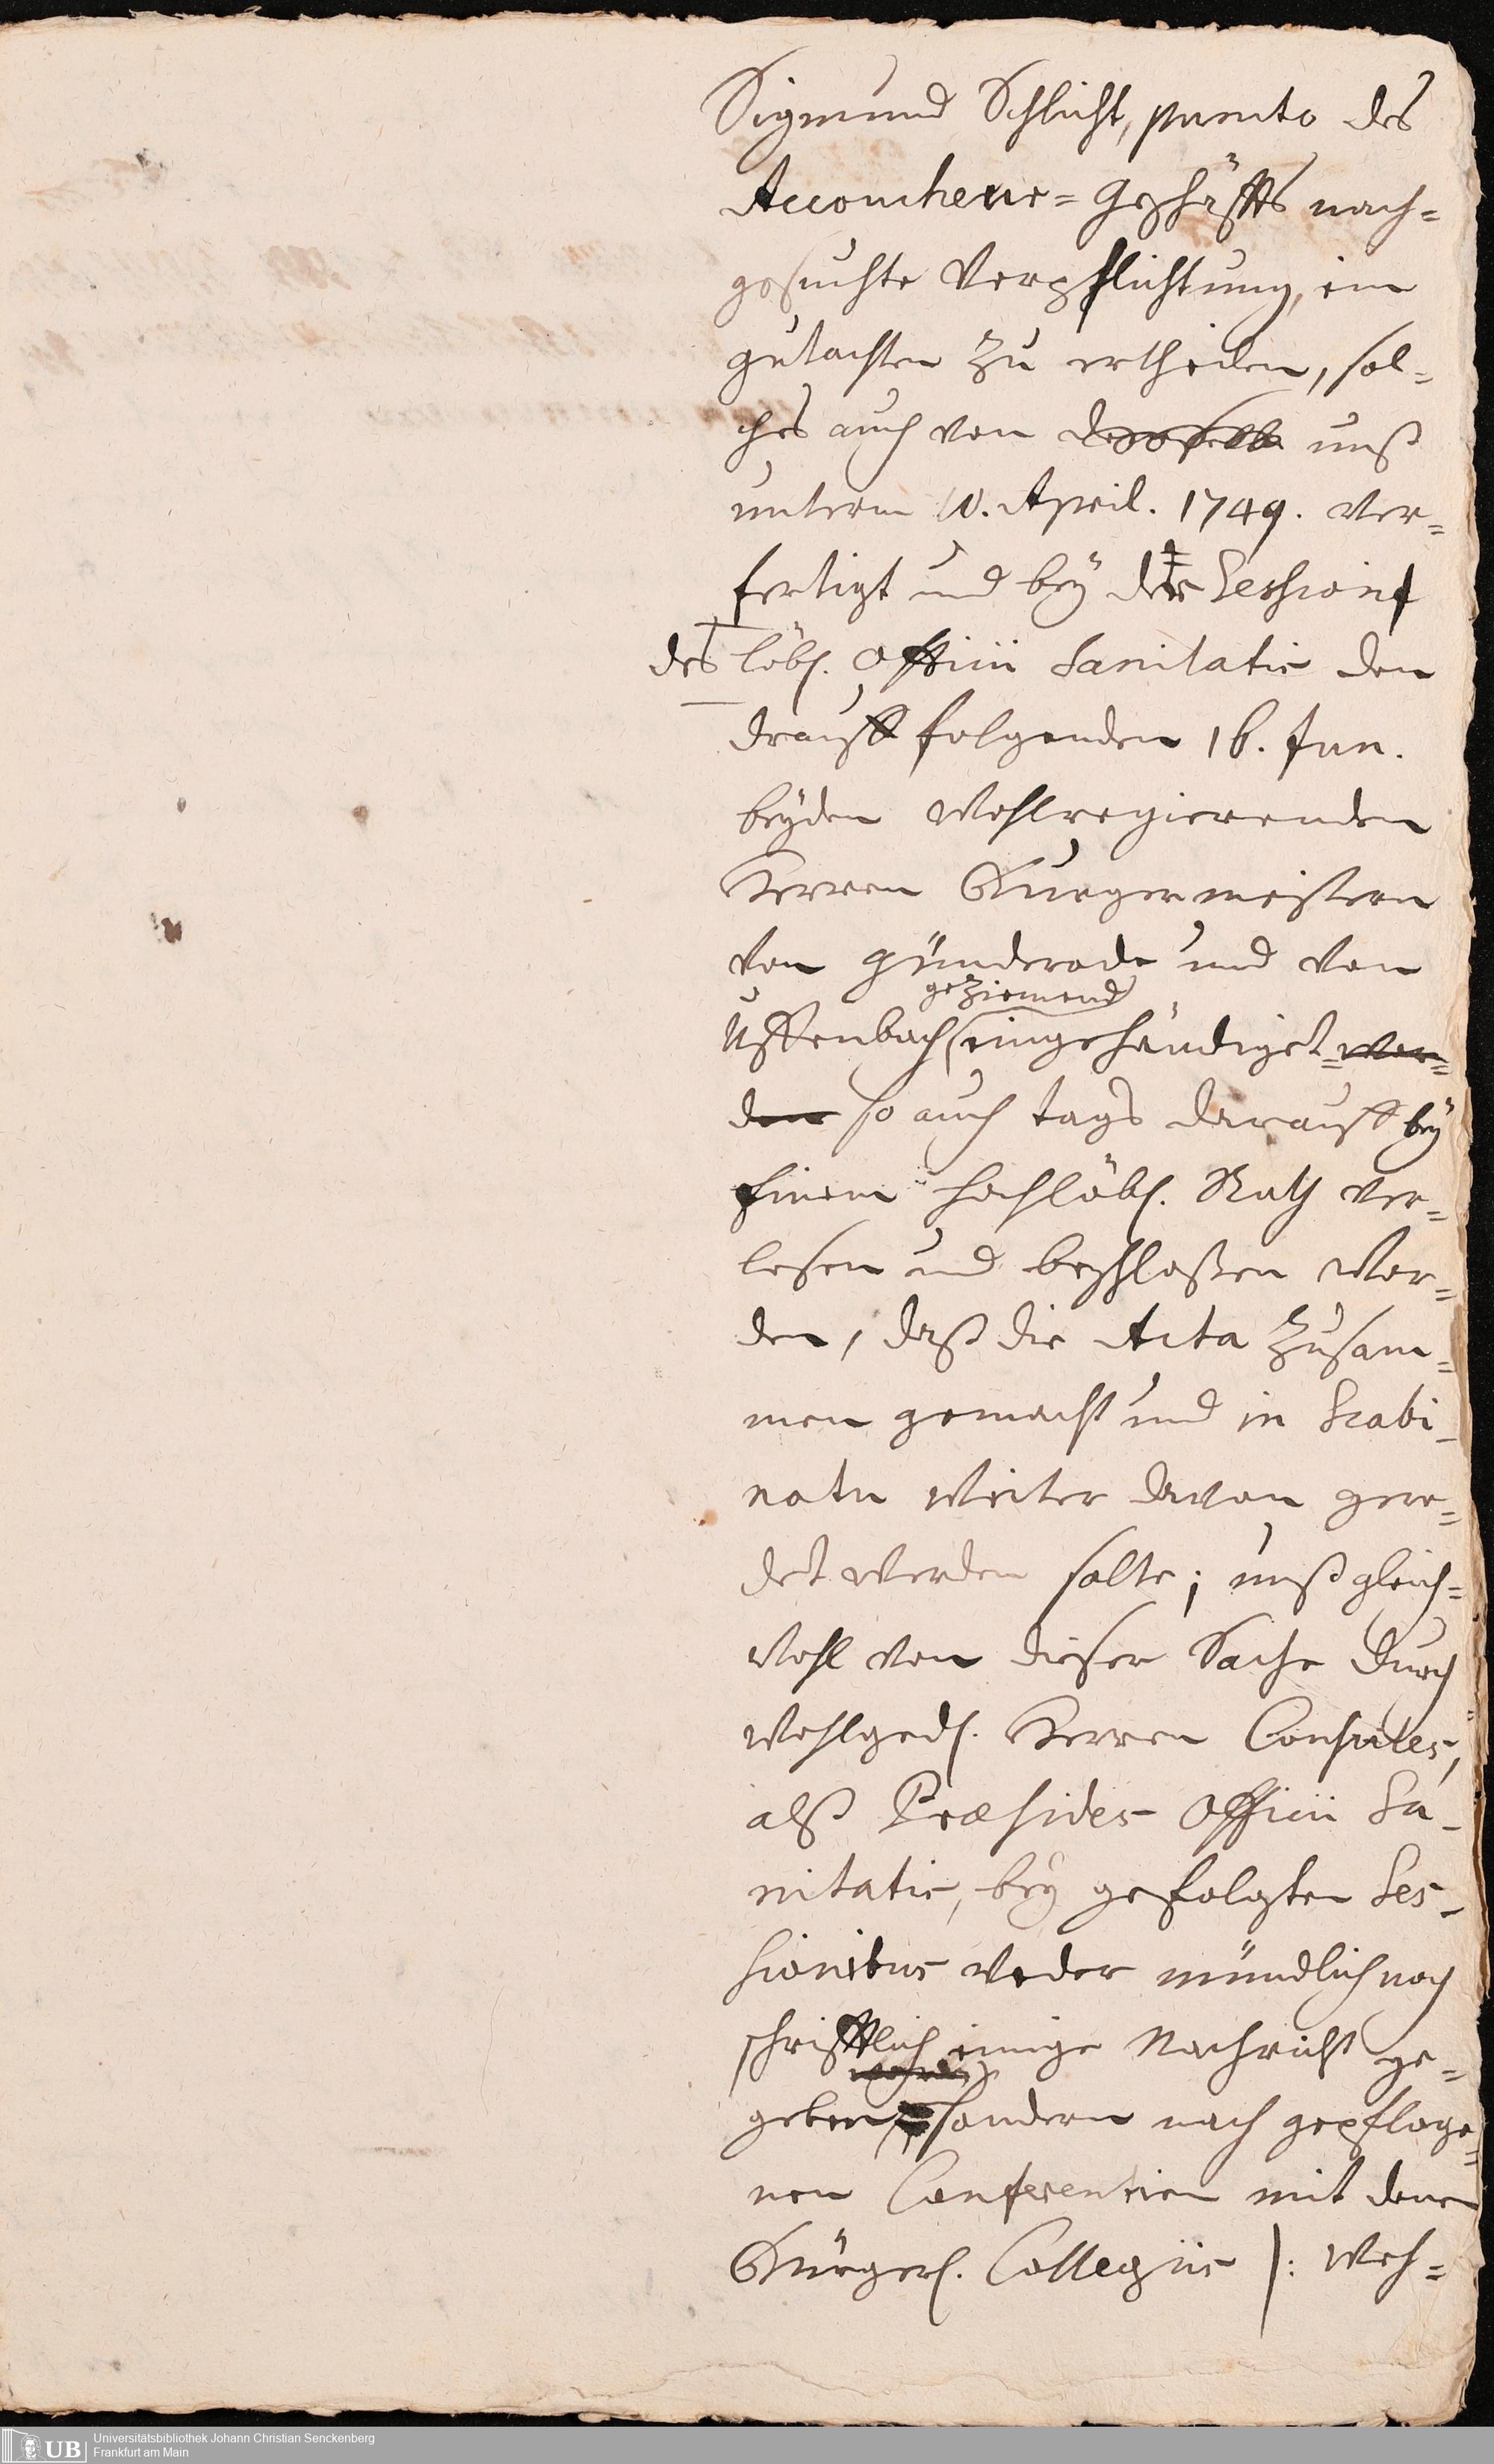 Sigmund Schlicht, puncto des
Accoucheur= Geschäffts nach=
gesuchte Verpflichtung, ein
gutachten zu ertheilen, sol=
ches auch von uns̈
unterm 10. April. 1749. ver=
fertigt und beÿ der Session
des löbl. Officii Sanitatis den
drauff folgenden 16. Jun.
beÿden Wohlregierenden
Herren Burgermeistern
von günderode und von
geziemend
Uffenbach eingehändiget wor=
den so auch tags darauff beÿ
Einem hochlöbl. Rath ver=
lesen und beschloßen wor=
den, daß die Acta zusam=
men gemacht und in Scabi-
natu weiter davon gere=
det werden solte; unß gleich=
wohl von dieser Sache durch
Wohlged. Herren Consules,
alß Præsides Officii Sa-
nitatis, beÿ gefolgten Ses-
sionibus weder mündlich noch
schrifftlich einige Nachricht ge=
worden
geben, sondern nach gepfloge=
nen Conferentien mit denen
Bürgerl. Collegiis |: Weh=
Universitätsbibliothek Johann Christian Senckenberg
Frankfurt am Main
UB